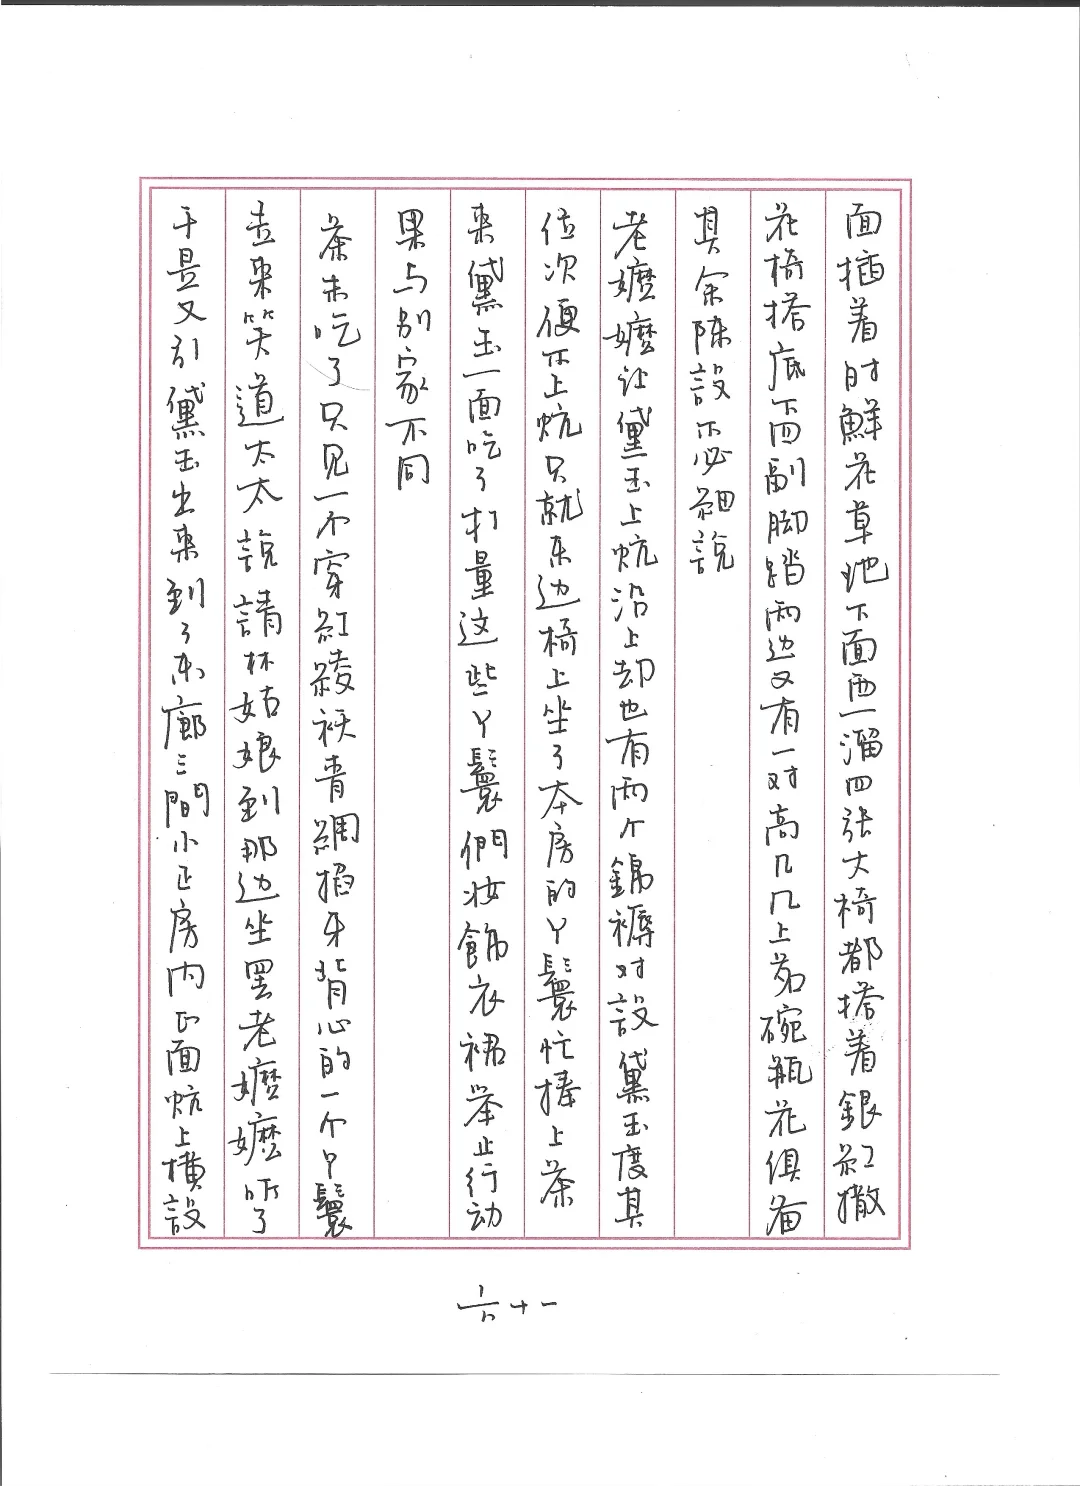 面插着时鮮花草地下面西一溜四张大椅都搭着銀红撒
花椅搭底下四副脚踏两边又有一对高几几上茗碗瓶花俱备
其余陈設不必細說
老嬷嬷让黛玉上炕沿上却也有两个錦褥对設黛玉度其
位次便不上炕只就东边椅上坐了本房的丫鬟忙捧上茶
来黛玉一面吃了打量这些丫鬟們妆飾衣裙举止行动
果与别家不同
茶未吃了只见一个穿紅綾袄青綢掐牙背心的一个丫鬟
走来笑道太太說請林姑娘到那边坐罢老嬷嬷听了
于是又引黛玉出来到了东廊三間小正房内正面炕上横設
六十一